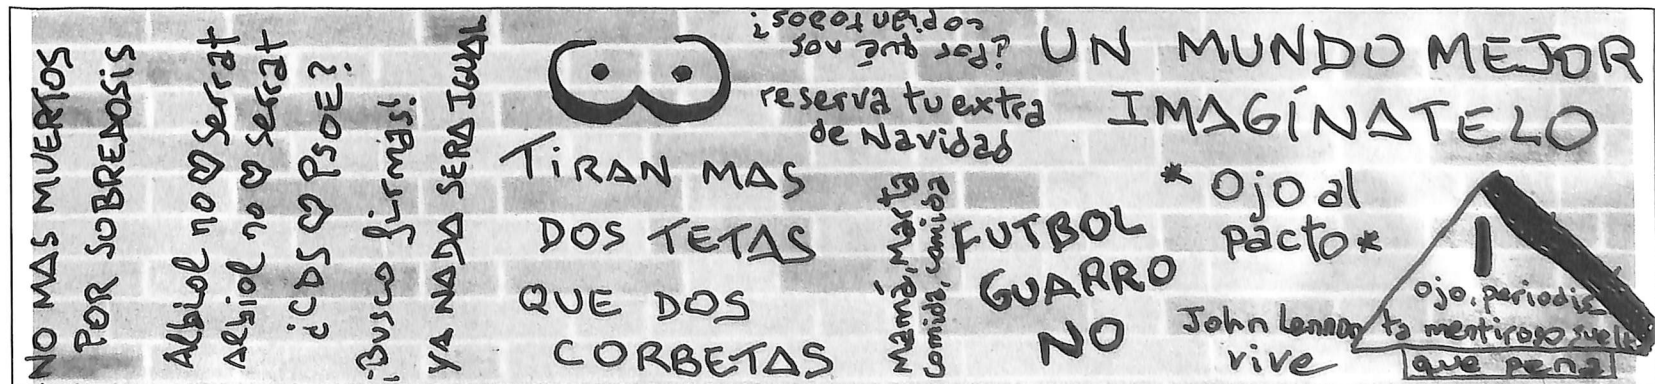 NO MAS MUERTOS
POR SOBREDOSIS
Albiol no ♡ Serrat
Albiol no ♡ Serrat
¿CDS ♡ PSOE?
¡Busco firmas!
YA NADA SERA IGUAL
TiRAN MAS
DOS TETAS
QUE DOS
CORBETAS
¿
copiando
por que nos
reserva tu extra
de Navidad
Mamá, Marta
UN MUNDO MEJOR
IMAGÍNATELO
* ojo al
pacto *
FUTBOL
GUARRO
NO
John Lennon
vive
ojo, periodis
ta mentiroso suelto
que pena